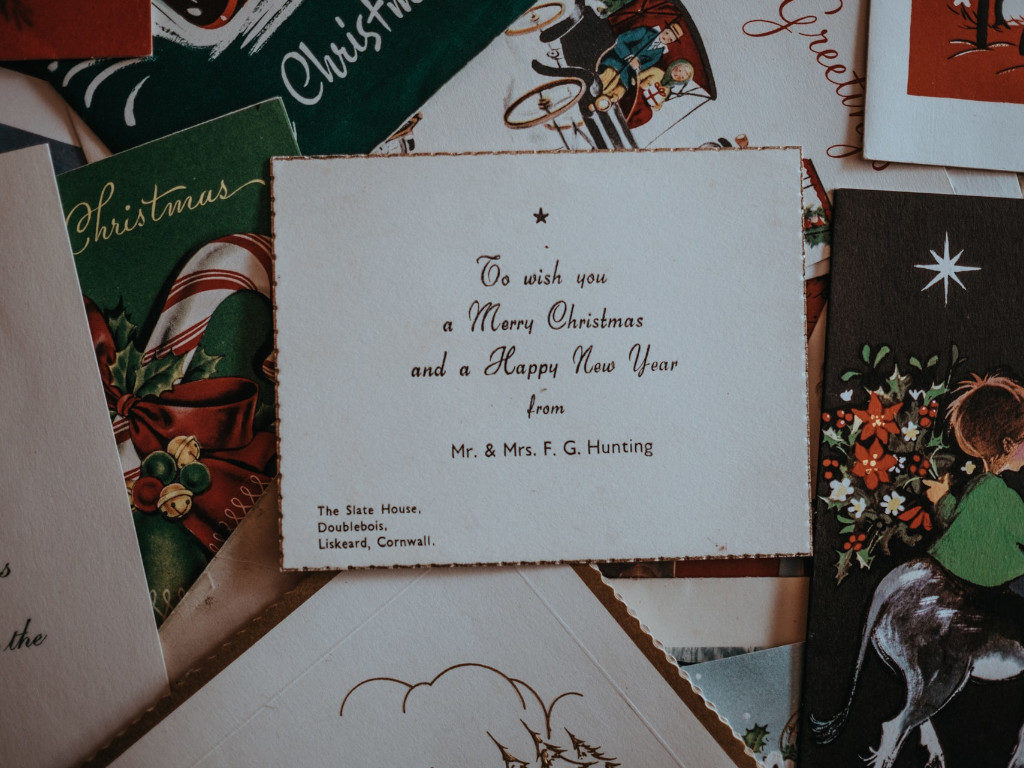 Christm
Greetin
Christmas
To wish you
a Merry Christmas
and a Happy New Year
from
Mr. & Mrs. F. G. Hunting
The Slate House,
Doublebois,
Liskeard, Cornwall.
s
the